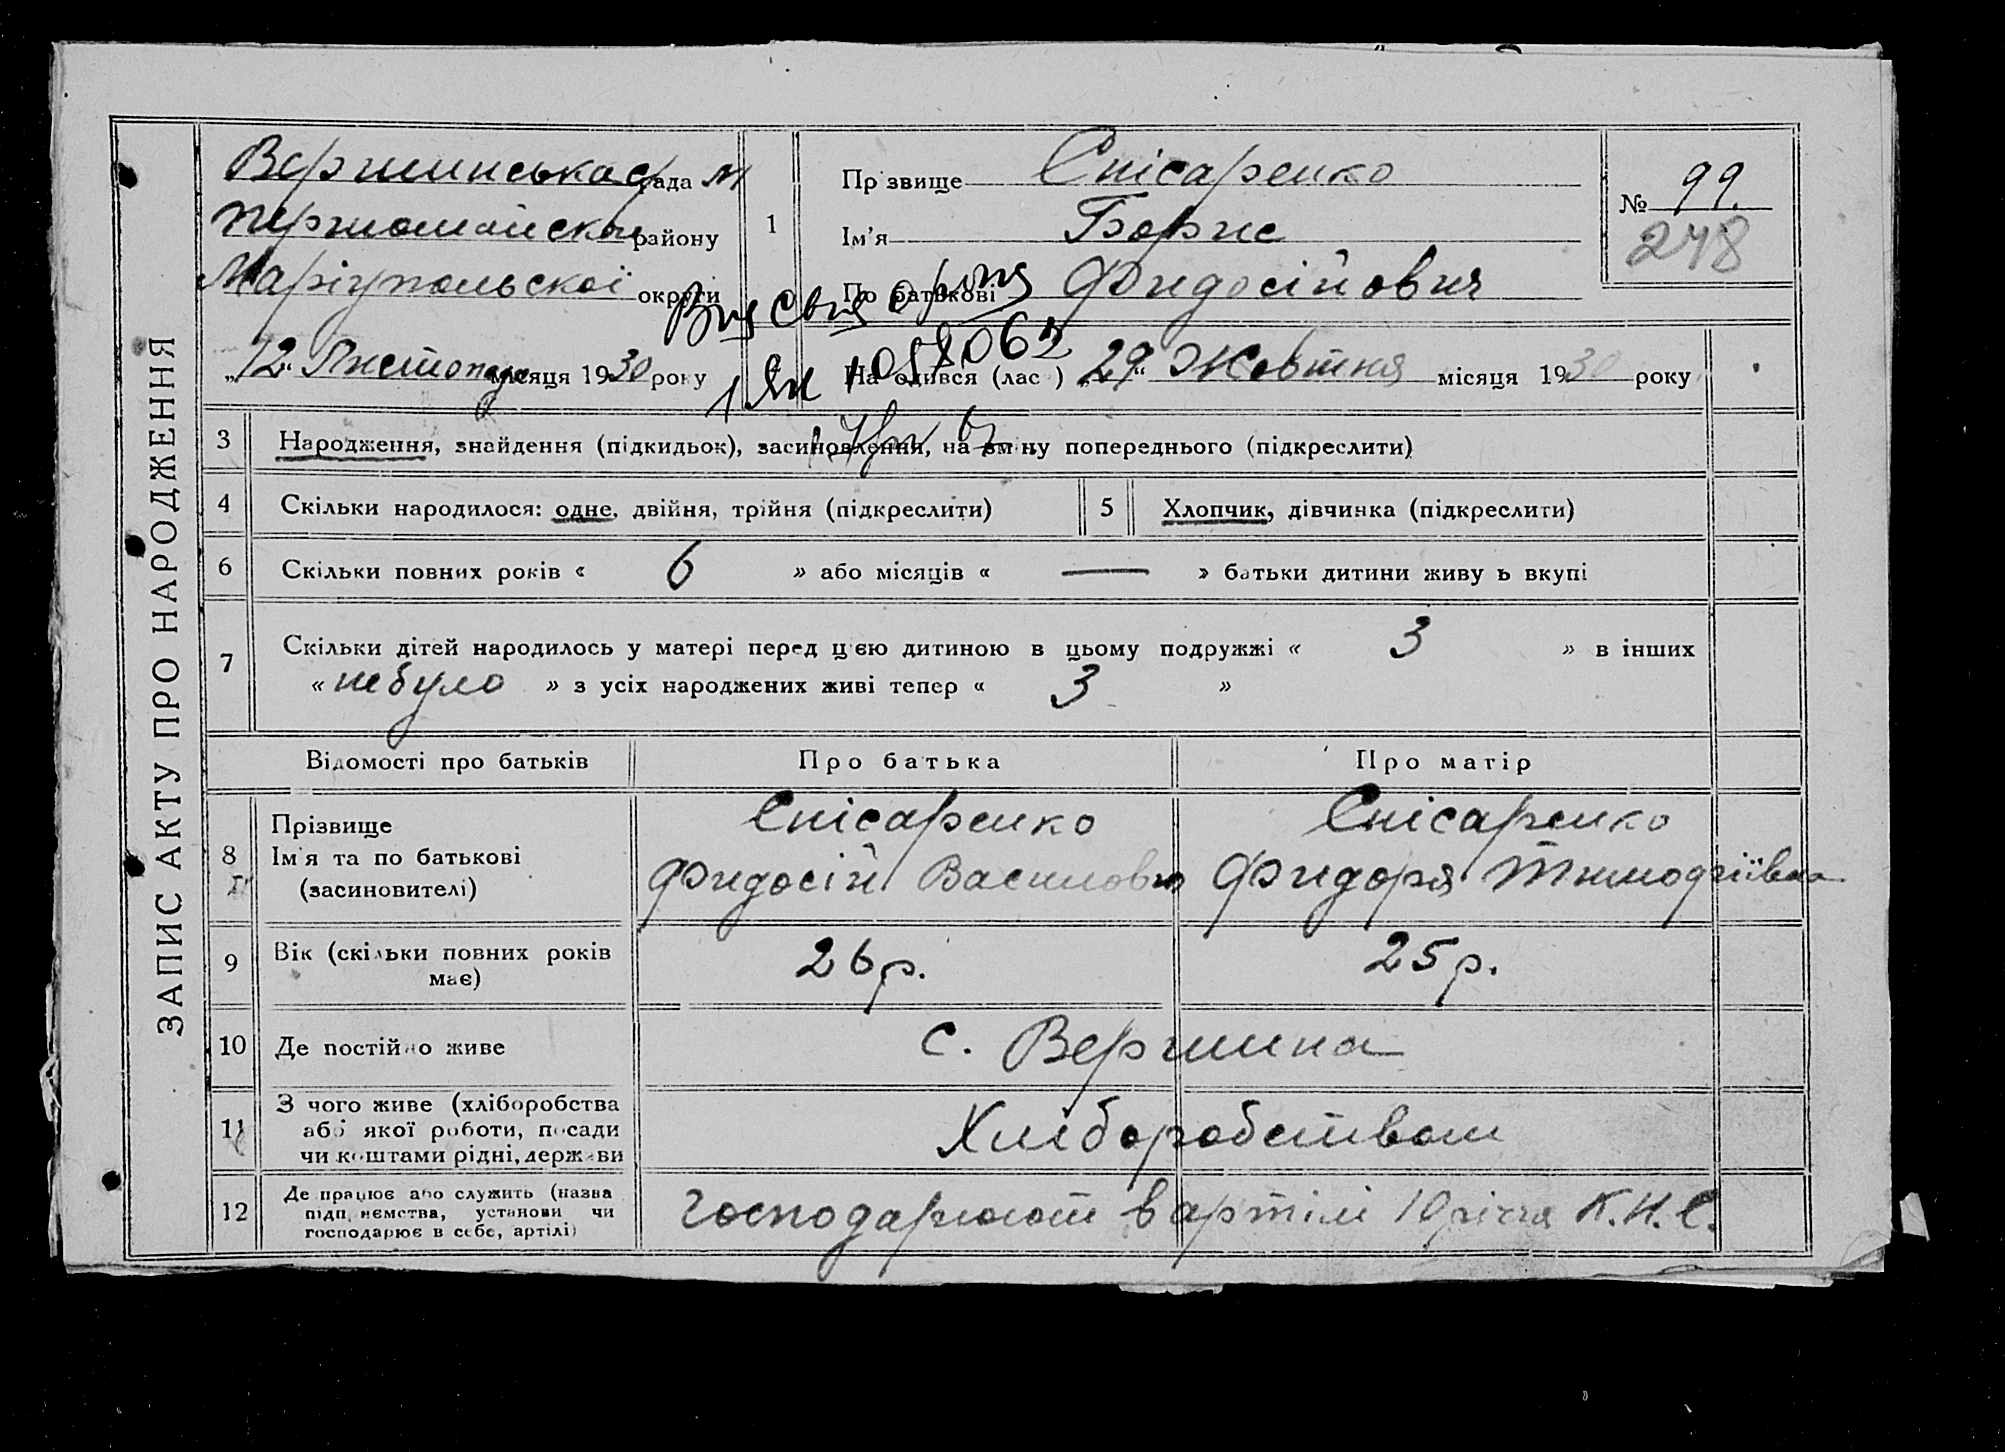 ЗАПИС АКТУ ПРО НАРОДЖЕННЯ
Вершинська рада
району
Маріупольскої округи
„12“ Листопада місяця 1930 року
1
Прізвище Спісаренко
Ім'я Борис
По батькові Фидосійович
№ 99.
248
Народився (лась) „29“ Жовтня місяця 1930 року
1058062
3 Народження, знайдення (підкидьок), засиновлення, на зміну попереднього (підкреслити)
4 Скільки народилося: одне, двійня, трійня (підкреслити)
5 Хлопчик, дівчинка (підкреслити)
6 Скільки повних років « 6 » або місяців « — » батьки дитини живуть вкупі
7 Скільки дітей народилось у матері перед цією дитиною в цьому подружжі « 3 » в інших
« небуло » з усіх народжених живі тепер « 3 »
Відомості про батьків
Про батька
Про матір
8 Прізвище
Ім'я та по батькові
(засиновителі)
Спісаренко
Фидосій Василович
Спісаренко
Фидоря Тимофіївна
9 Вік (скільки повних років
має)
26 р.
25 р.
10 Де постійно живе
с. Вершина
11 З чого живе (хліборобства
або якої роботи, посади
чи коштами рідні, держави
Хліборобством
12 Де працює або служить (назва
підприємства, установи чи
господарює в себе, артілі)
господарюют в артілі 10 річчя К.Н.С.